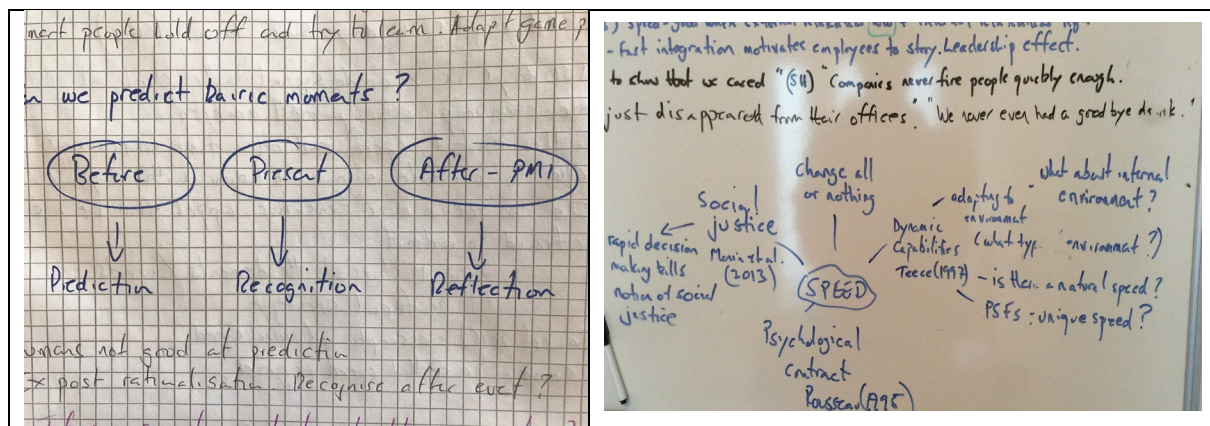 people hold off and try to learn. Adapt game
we predict Kairic moments ?
Before
Present
After - PMI
Prediction
Recognition
Reflection
not good at prediction
post rationalisation. Recognise after event ?
- Fast integration motivates employees to stay. Leadership effect.
to show that we cared "(SH) "Companies never fire people quickly enough.
just disappeared from their offices". "We never even had a goodbye drink."
Change all
or nothing
Social
justice
rapid decision
making kills
notion of social
justice
(2013)
SPEED
Dynamic
Capabilities
Teece (1997)
adapting to
environment
(what typ environment ?)
what about internal
environment ?
- is there a natural speed ?
PSFs : unique speed ?
Psychological
contract
Rousseau (1995)